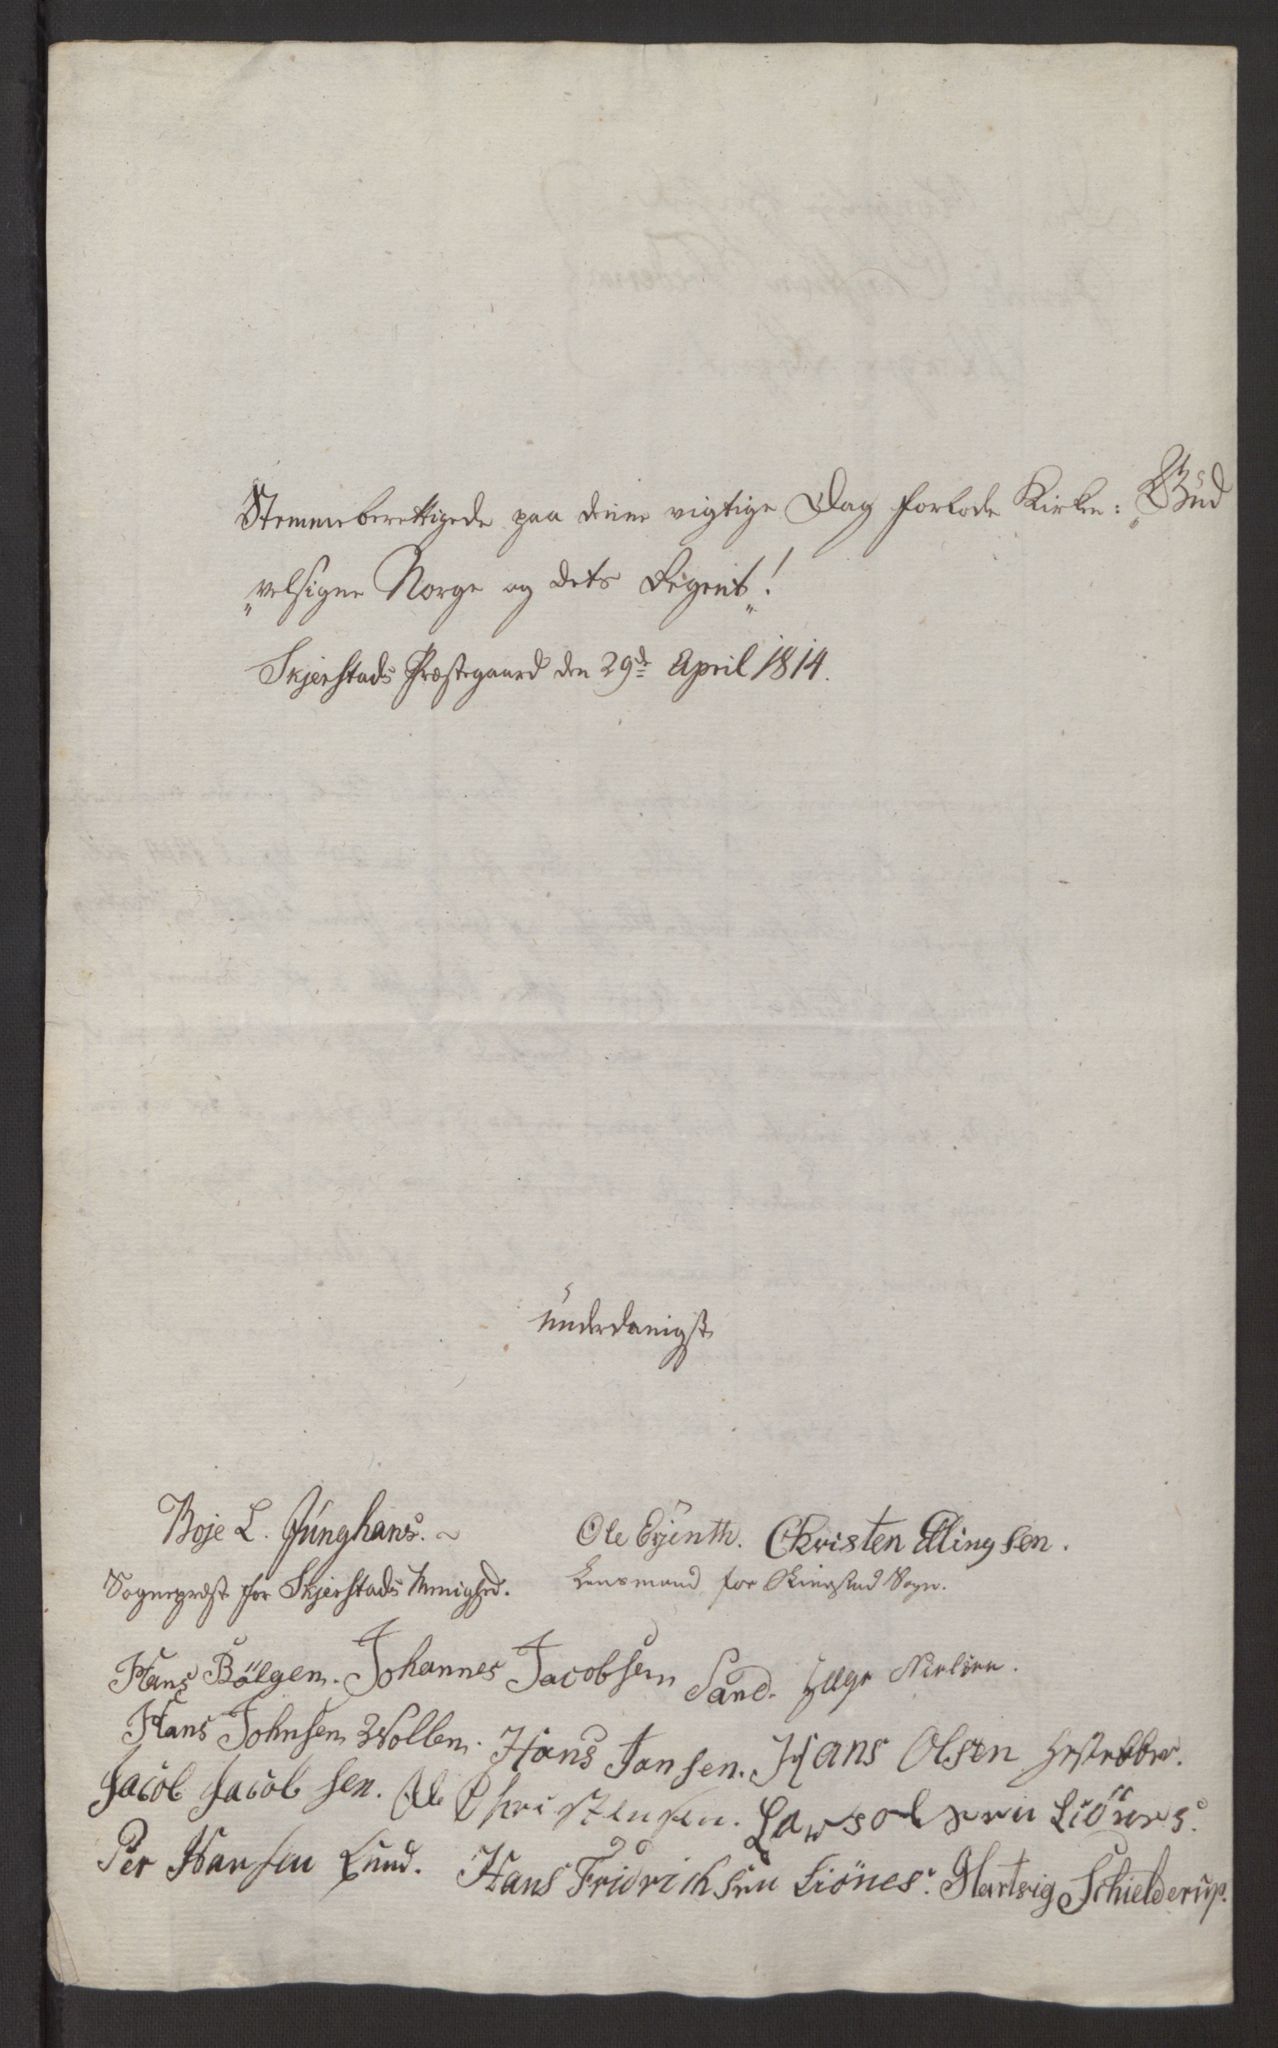 Stemmeberettigede paa denne vigtige Dag forlode Kirken: "Gud
"velsigne Norge og dets Regent"!
Skjerstads Præstegaard den 29de April 1814.
Underdanigst
Boje L. Junghans. Ole Erjenth. Christen Ellingsen.
Sognepræst for Skjerstads Menighed. Lensmand for Skierstad Sogn.
Hans Bölgen. Johannes Jacobsen Sand. Helge Nielsen.
Hans Johnsen Wollen. Hans Jansen. Hans Olsen
Jacob Jacobsen. Ole Christensen. Lars olsen Liönes.
Per Hansen Lund. Hans Fridrichsen Liönes. Hartvig Schielderup.